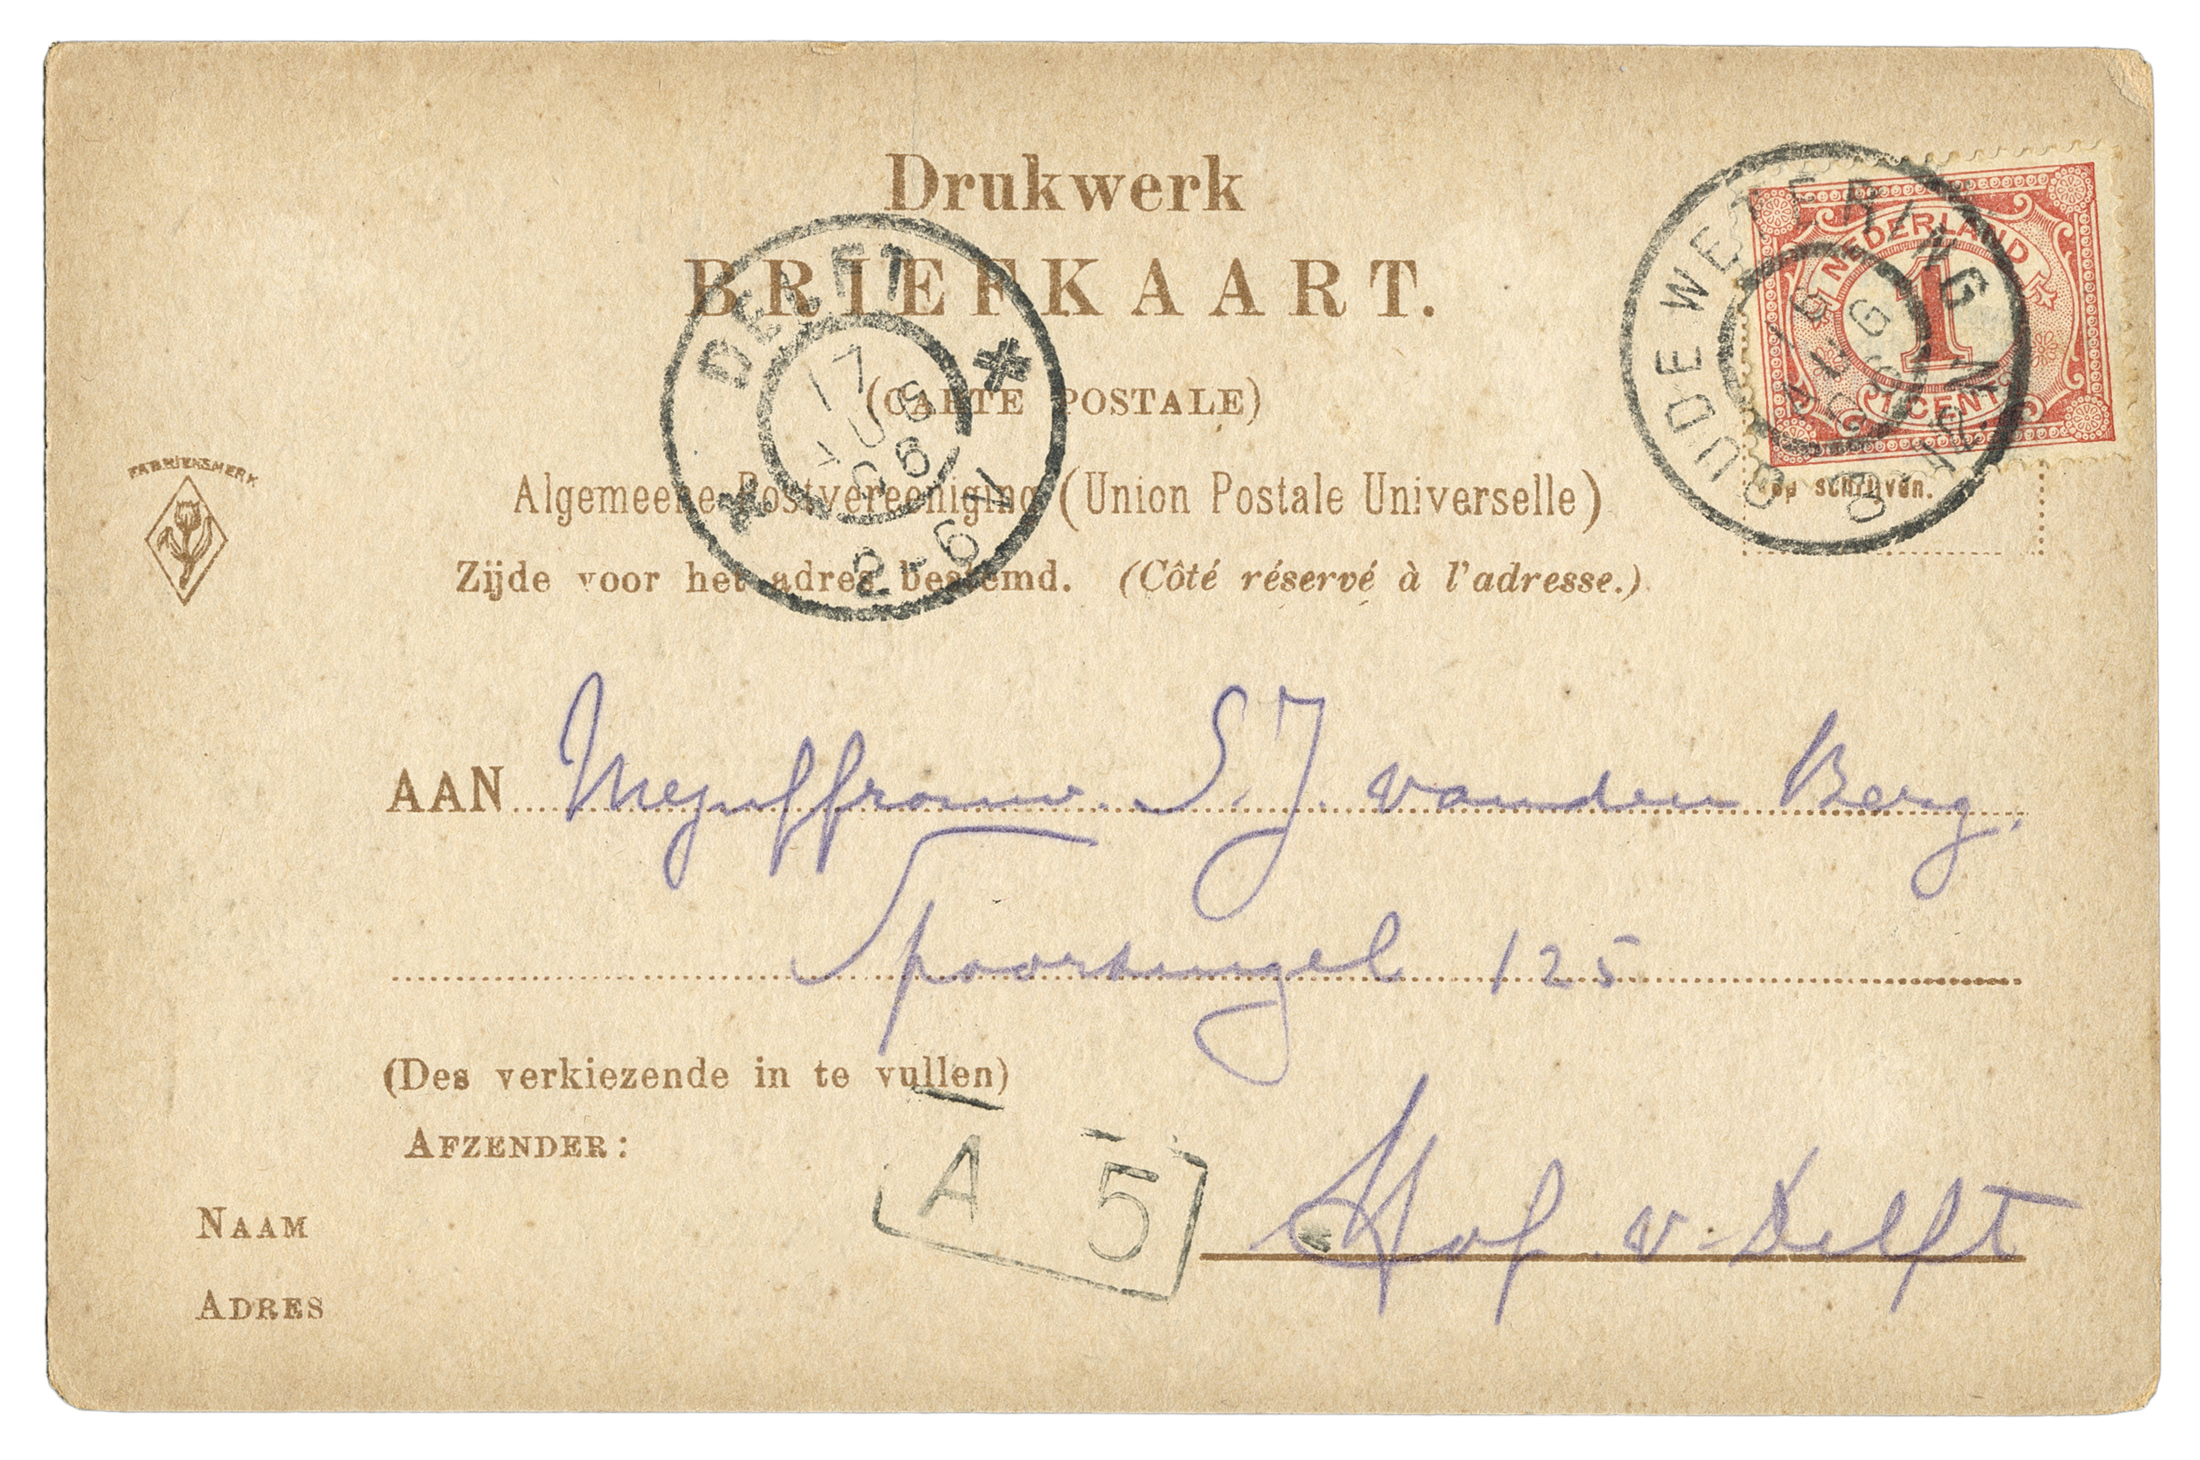 Drukwerk
BRIEFKAART.
(CARTE POSTALE)
Algemeene Postvereeniging (Union Postale Universelle)
Zijde voor het adres bestemd. (Côté réservé à l'adresse.)
FABRIEKSMERK
DELFT
17
AUG
06
2-6N
OUDE WETERING
16
AUG
06
8-12N
NEDERLAND
1
1 CENT
schrijven.
AAN Mejuffrouw. S. J. van den Berg.
Spoorsingel 125
Hof. v. Delft
(Des verkiezende in te vullen)
AFZENDER:
A 5
NAAM
ADRES